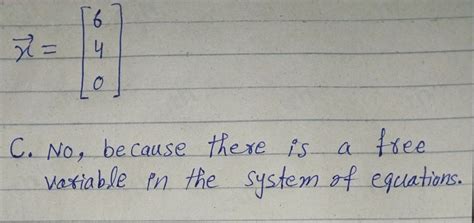 x⃗ = [6
4
0]
C. No, because there is a free
variable in the system of equations.